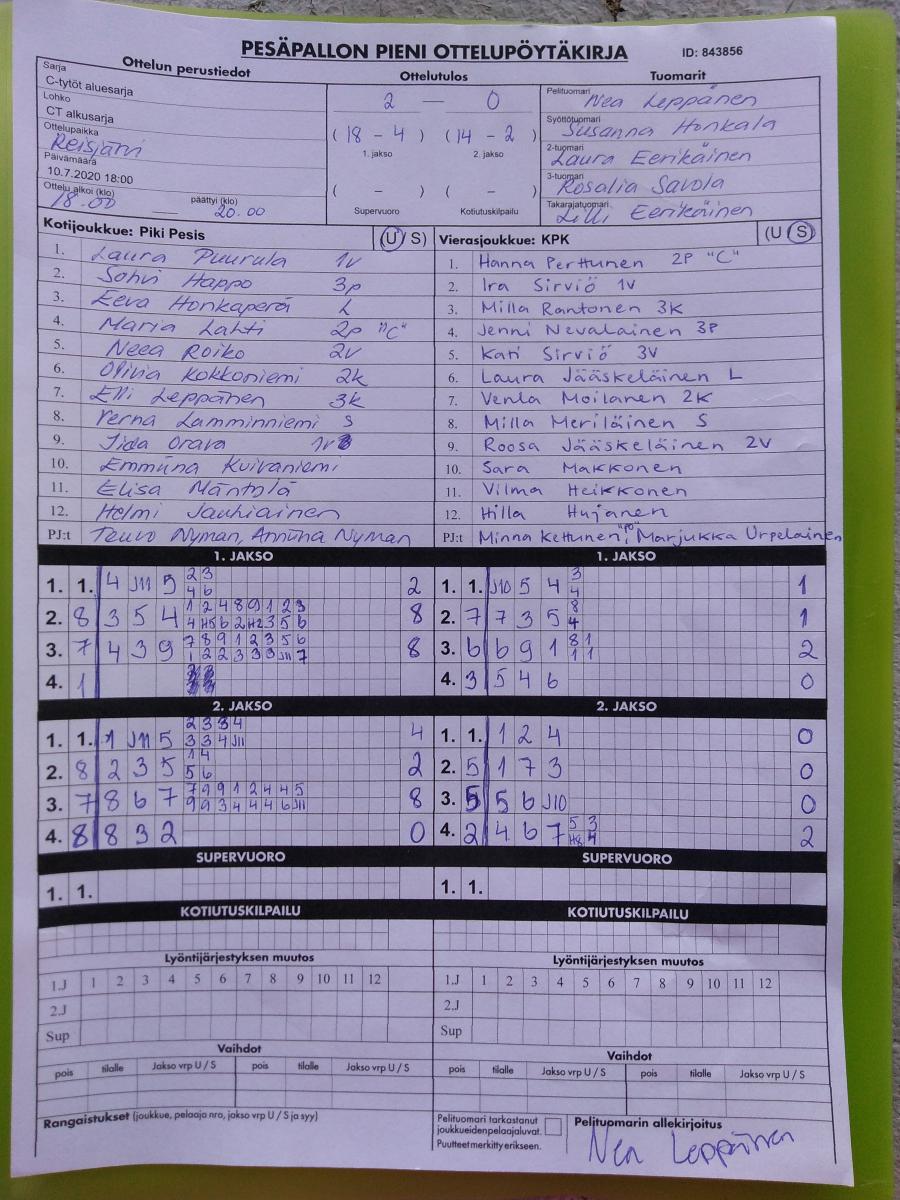 PESÄPALLON PIENI OTTELUPÖYTÄKIRJA ID: 843856
Ottelun perustiedot Ottelutulos Tuomarit
Sarja
C-tytöt aluesarja
Lohko
CT alkusarja
Ottelupaikka
Reisjärvi
Päivämäärä
10.7.2020 18:00
Ottelu alkoi (klo) päättyi (klo)
18.00 — 20.00
2 — 0
( 18 - 4 ) ( 14 - 2 )
1. jakso 2. jakso
( - ) ( - )
Supervuoro Kotiutuskilpailu
Pelituomari
Nea Leppänen
Syöttötuomari
Susanna Honkala
2-tuomari
Laura Eerikäinen
3-tuomari
Rosalia Savola
Takarajatuomari
Lilli Eerikäinen
Kotijoukkue: Piki Pesis (U / S)
1. Laura Puurula 1v
2. Sohvi Happo 3p
3. Eeva Honkaperä L
4. Maria Lahti 2p "C"
5. Neea Roiko 2v
6. Olivia Kokkoniemi 2k
7. Elli Leppänen 3k
8. Verna Lamminniemi S
9. Iida Orava
10. Emmiina Kuivaniemi
11. Elisa Mäntylä
12. Helmi Jauhiainen
PJ:t Teuvo Nyman, Anniina Nyman
Vierasjoukkue: KPK (U / S)
1. Hanna Perttunen 2P "C"
2. Ira Sirviö 1v
3. Milla Rantonen 3K
4. Jenni Nevalainen 3P
5. Kati Sirviö 3V
6. Laura Jääskeläinen L
7. Venla Moilanen 2K
8. Milla Meriläinen S
9. Roosa Jääskeläinen 2V
10. Sara Makkonen
11. Vilma Heikkonen
12. Hilla Hujanen
PJ:t Minna Kettunen "PJ", Marjukka Urpelainen
1. JAKSO 1. JAKSO
2 3
1. 1. 4 J11 5 4 6 2
1 2 4 8 9 1 2 3
2. 8 3 5 4 4 H5 6 2 H2 3 5 6 8
7 8 9 1 2 3 5 6
3. 7 4 3 9 1 2 2 3 3 3 J11 7 8
4. 1
3
1. 1. J10 5 4 4 1
8
2. 7 7 3 5 4 1
8 1
3. 6 6 9 1 1 1 2
4. 3 5 4 6 0
2. JAKSO 2. JAKSO
2 3 3 4
1. 1. 1 J11 5 3 3 4 J11 4
1 4
2. 8 2 3 5 5 6 2
7 9 9 1 2 4 4 5
3. 7 8 6 7 9 9 3 4 4 4 6 J11 8
4. 8 8 3 2 0
1. 1. 1 2 4 0
2. 5 1 7 3 0
3. 5 5 6 J10 0
5 3
4. 2 4 6 7 H8 4 2
SUPERVUORO SUPERVUORO
1. 1. 1. 1.
KOTIUTUSKILPAILU KOTIUTUSKILPAILU
Lyöntijärjestyksen muutos Lyöntijärjestyksen muutos
1.J 1 2 3 4 5 6 7 8 9 10 11 12 1.J 1 2 3 4 5 6 7 8 9 10 11 12
2.J 2.J
Sup Sup
Vaihdot Vaihdot
pois tilalle Jakso vrp U / S pois tilalle Jakso vrp U / S pois tilalle Jakso vrp U / S pois tilalle Jakso vrp U / S
Rangaistukset (joukkue, pelaaja nro, jakso vrp U / S ja syy)
Pelituomari tarkastanut
joukkueidenpelaajaluvat.
Puutteet merkitty erikseen.
Pelituomarin allekirjoitus
Nea Leppänen